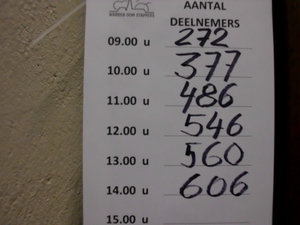 AANTAL
DEELNEMERS
09.00 u 272
10.00 u 377
11.00 u 486
12.00 u 546
13.00 u 560
14.00 u 606
15.00 u